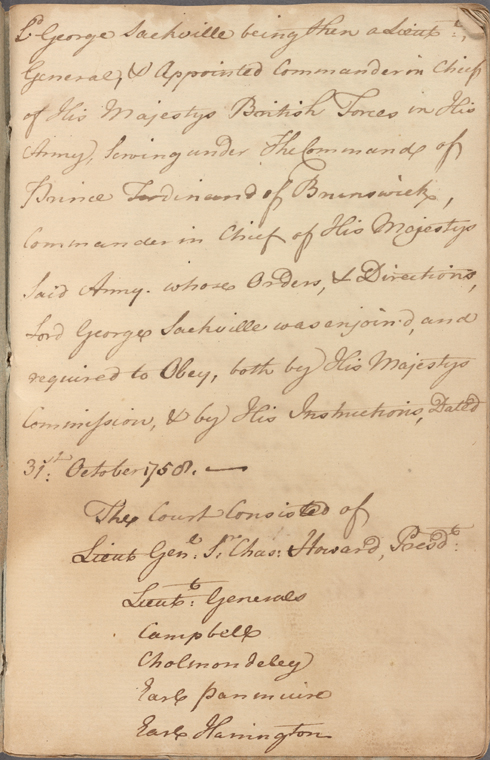 Ld George Sackville being then a Lieutt:,
General, & Appointed Commander in Chief
of His Majestys British Forces in His
Army, Serving under The Command of
Prince Ferdinand of Brunswick,
Commander in Chief of His Majestys
Said Army. whose Orders, & Directions,
Lord George Sackville was enjoin'd, and
required to Obey, both by His Majestys
Commission, & by His Instructions, Dated
31st: October 1758. —
The Court Consisted of
Lieut Genl: Sr: Chas: Howard, Presdt:
Lieutt: Generals
Campbell
Cholmondeley
Earl Panmuire
Earl Harrington